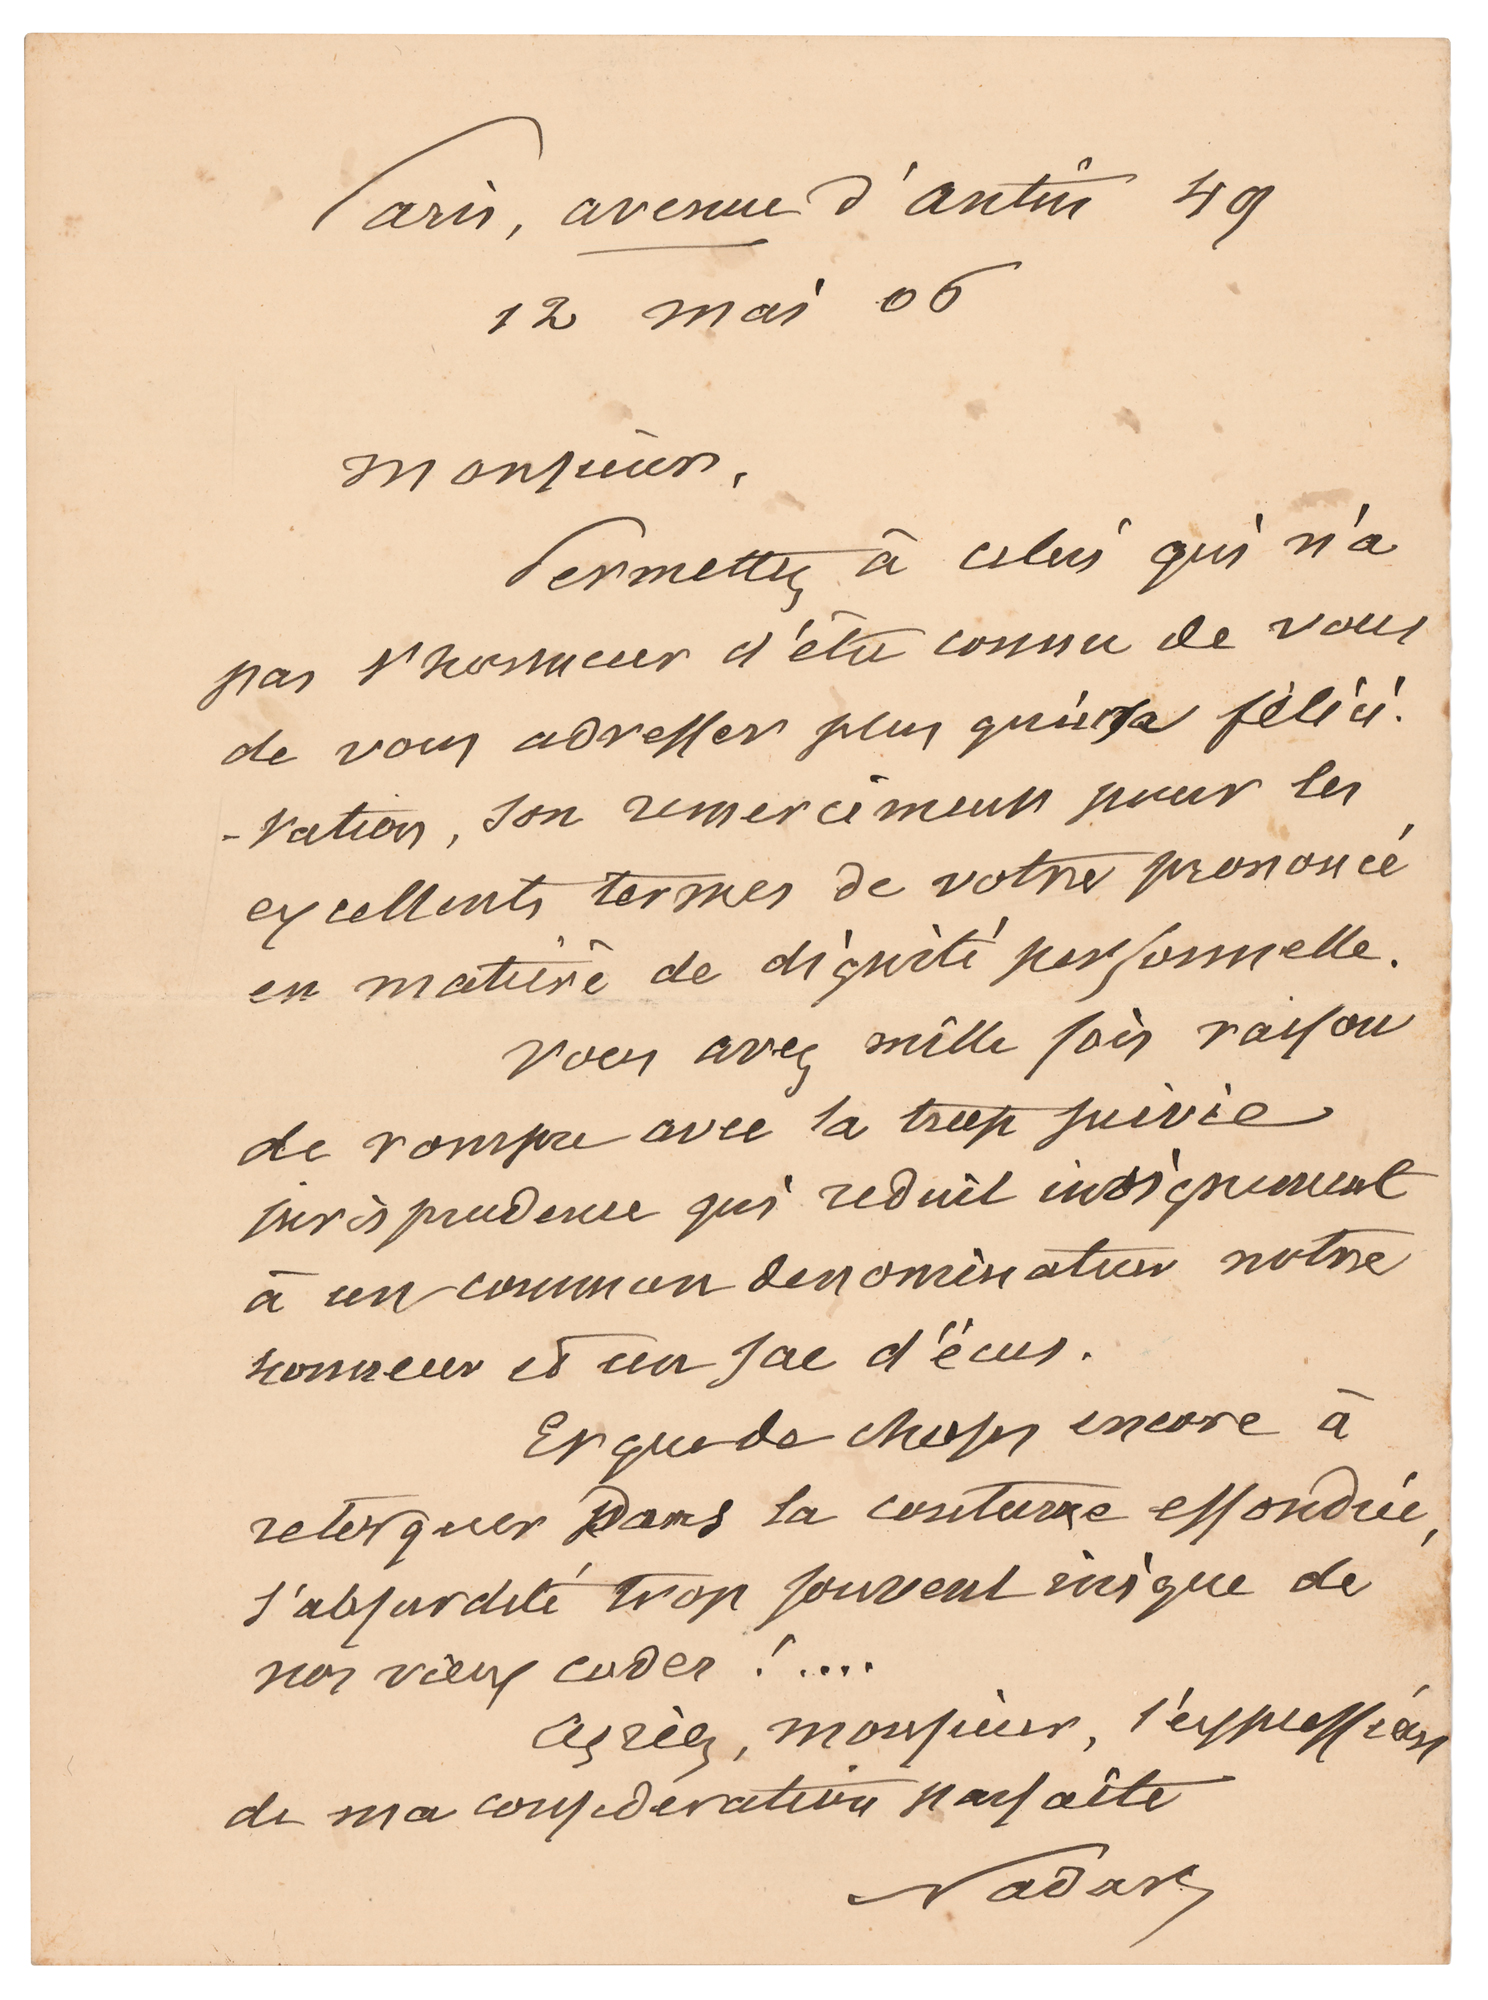 Paris, avenue d'antin 49
12 mai 06
Monsieur,
Permettez à celui qui n'a
pas l'honneur d'être connu de vous
de vous adresser plus qu'une félici-
-tation, son remerciement pour les
excellents termes de votre prononcé
en matière de dignité personnelle.
Vous avez mille fois raison
de rompre avec la trop suivie
jurisprudence qui réduit indignement
à un commun dénominateur notre
honneur et un sac d'écus.
Et que de choses encore à
retorquer dans la coutume effondrée,
l'absurdité trop souvent inique de
nos vieux codes !....
Agréez, monsieur, l'expression
de ma considération parfaite
Nadar